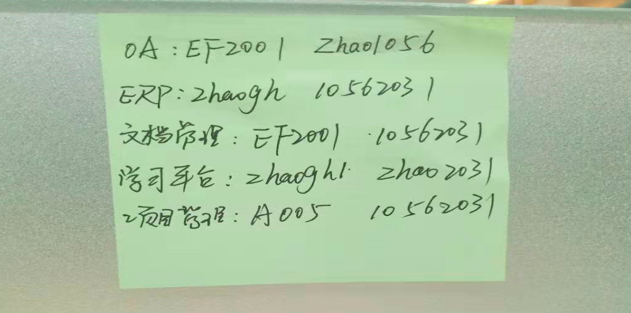 OA：EF2001 Zhao1056
ERP：zhaogh 10562031
文档管理：EF2001 10562031
学习平台：zhaogh1 zhao2031
项目管理：A005 10562031